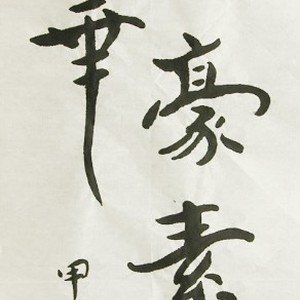 豪素
華
甲